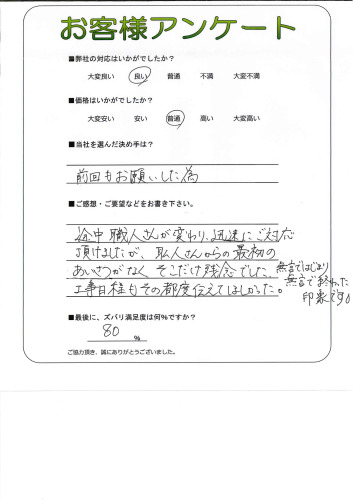 お客様アンケート
■弊社の対応はいかがでしたか？
大変良い 良い 普通 不満 大変不満
■価格はいかがでしたか？
大変安い 安い 普通 高い 大変高い
■当社を選んだ決め手は？
前回もお願いした為
■ご感想・ご要望などをお書き下さい。
途中職人さんが変わり、迅速にご対応
頂けましたが、職人さんからの最初の
あいさつがなく、そこだけ残念でした。無言ではじまり
無言で終わった
印象です。
工事日程もその都度伝えてほしかった。
■最後に、ズバリ満足度は何％ですか？
80 ％
ご協力頂き、誠にありがとうございました。